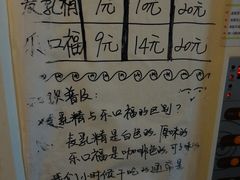 麦乳精 7元 10元 20元
乐口福 9元 14元 20元
麦乳精与乐口福的区别?
麦乳精是白色的 原味的
乐口福是咖啡色的 可可味的